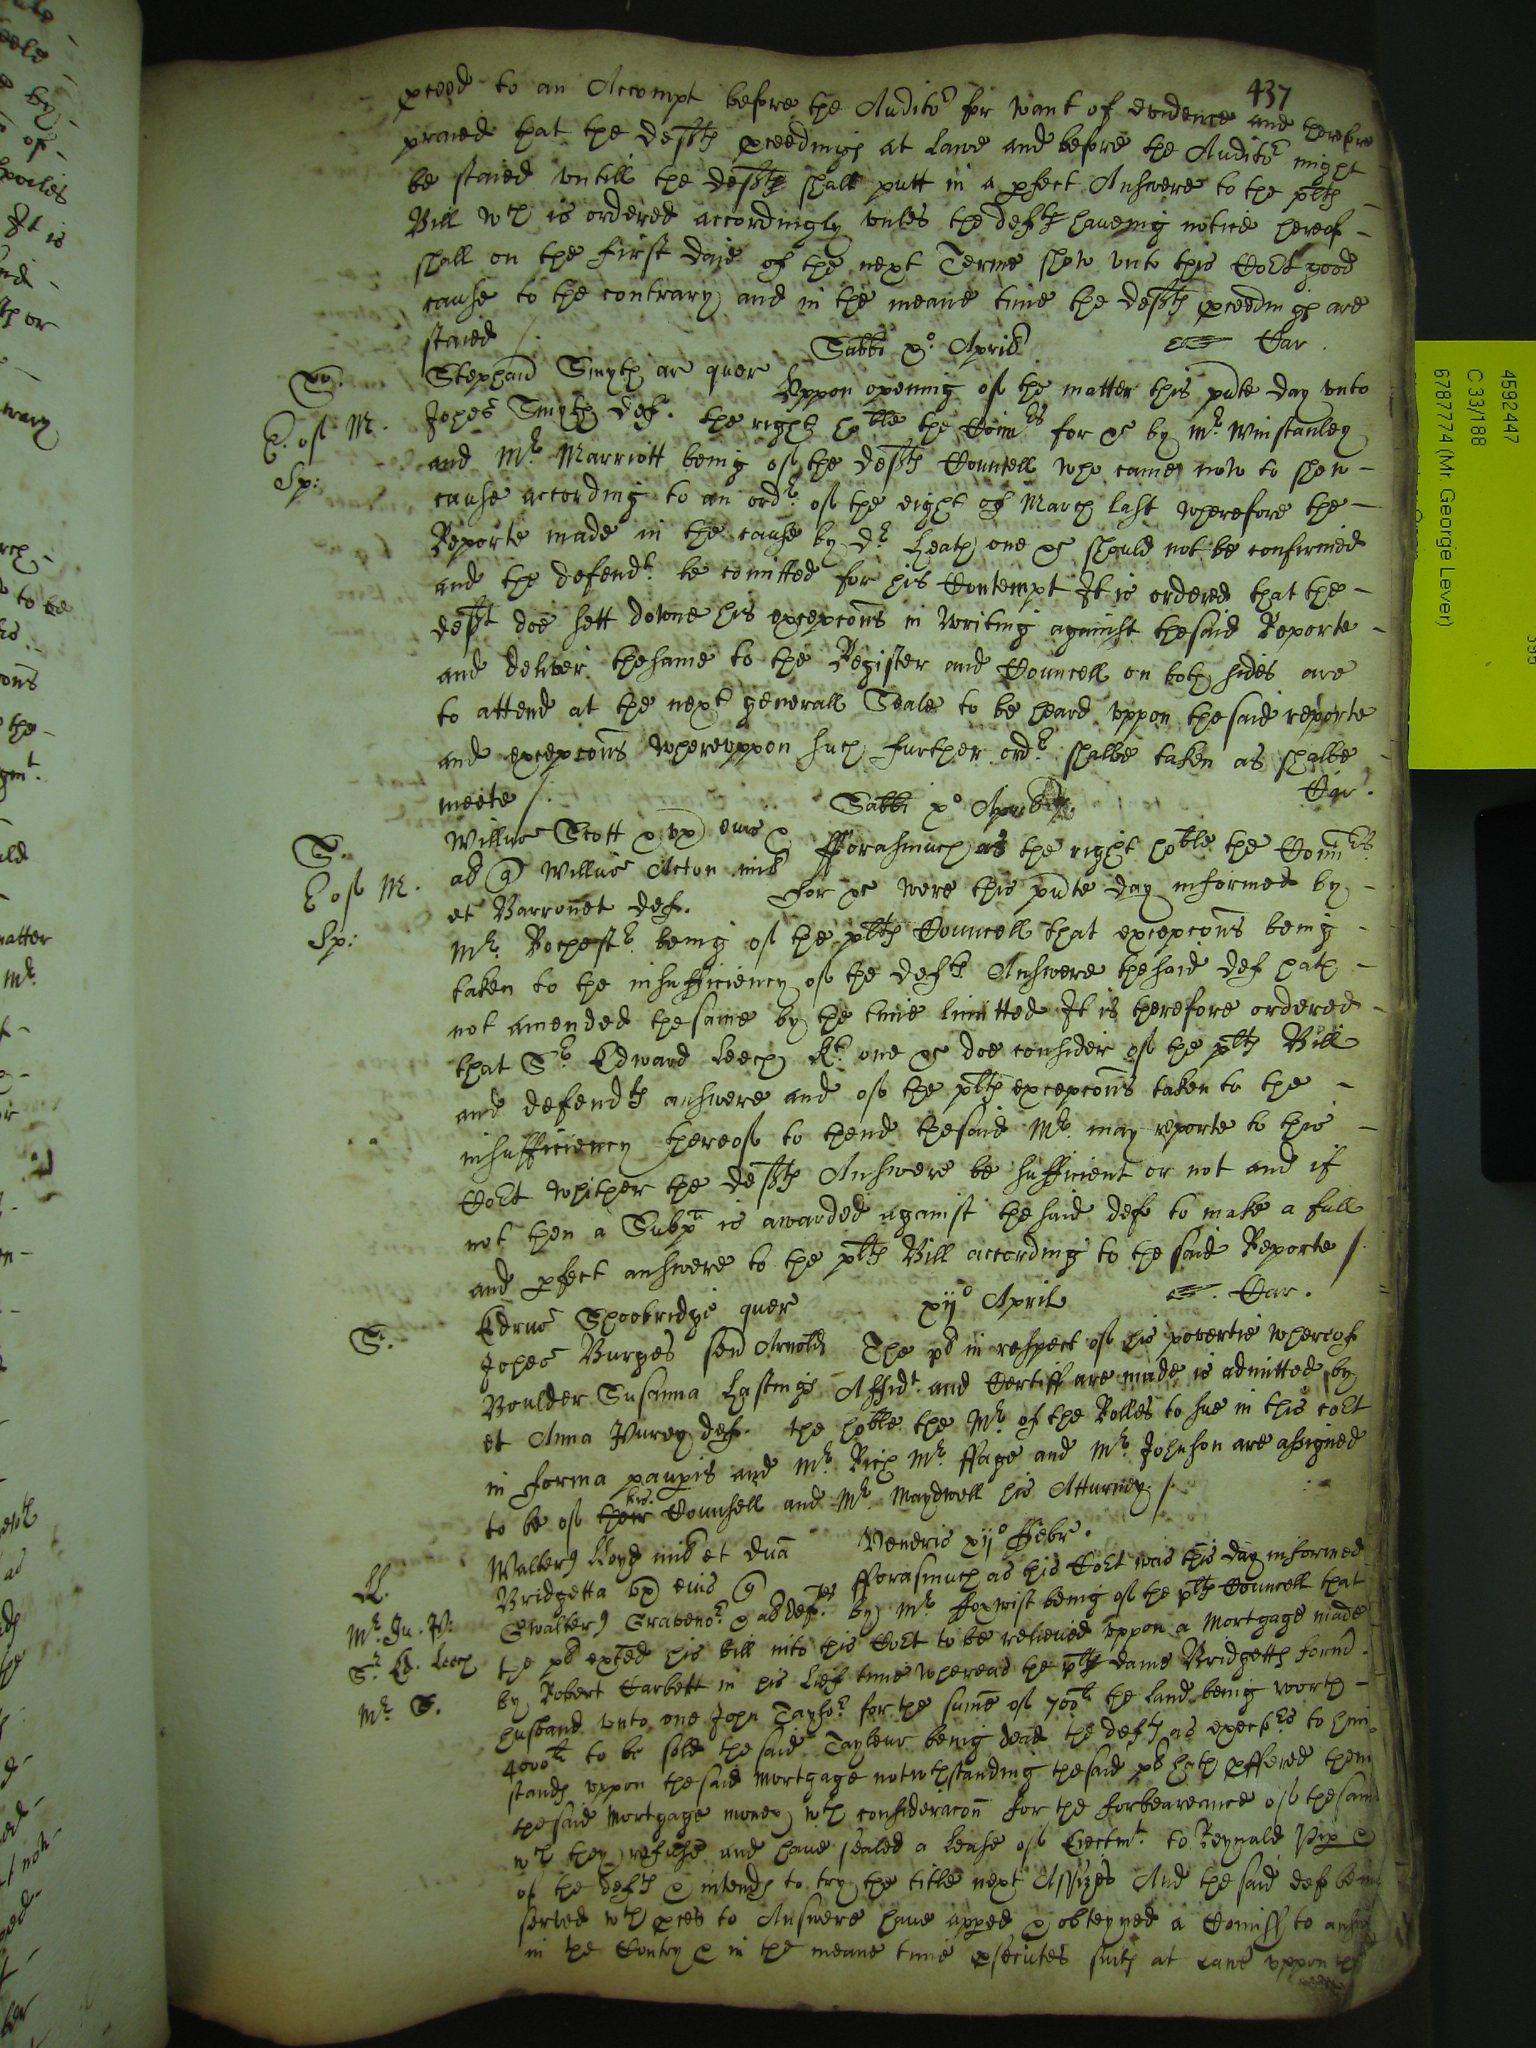 437
pceed to an Accompt before the Auditor for want of evidence and therefore
praied that the defts pceedings at Lawe and before the Auditor might
be staied untill the defts shall putt in a pfect Answere to the plts
Bill wch is ordered accordingly unles the defts haveing notice hereof
shall on the first daie of the next Terme shew unto this Cort good
cause to the contrary and in the meane time the defts pceedings are
staied
Sabbi xo Aprilis Car.
Stephan Smyth ar quer Uppon opening of the matter this pnte day unto
E. of M. Johes Smyth def. the right hoble the Comrs for &c by Mr Winstanley
Sp: and Mr Marriott being of the defts Councell who came now to shew
cause according to an ordr of the eight of March last wherefore the
Reporte made in the cause by Dr Heath one &c should not be confirmed
and the defendt be comitted for his Contempt It is ordered that the
deft doe sett downe his excepcons in writing against thesaid Reporte
and deliver thesame to the Register and Councell on both sides are
to attend at the next generall Seale to be heard uppon thesaid reporte
and excepcons whereuppon such further ordr shalbe taken as shalbe
meete Car.
Sabbi xo Aprilis
S. Willus Scott & ux eius &
al q Willus Acton mil fforasmuch as the right hoble the Comrs
E of M. et Barronet def. for &c were this pnte day informed by
Sp: Mr Rochestr being of the plts Councell that excepcons being
taken to the insufficiency of the defts Answere thesaid def hath
not amended thesame by the time limitted It is therefore ordered
that Sr Edward Leech Kt one &c doe consider of the plts Bill
and defendts answere and of the plts excepcons taken to the
insufficiency thereof to thend thesaid Mr may reporte to this
Cort whither the defts Answere be sufficient or not and if
not then a Subpa is awarded against thesaid def to make a full
and pfect answere to the plts Bill according to the said Reporte
S. Edrus Shoobridge quer xijo April Car.
Johes Burges sen Arnold The pl in respect of his povertie whereof
Boulder Susanna Hastings Affidt and Certiff are made is admitted by
et Anna Purey def. the hoble the Mr of the Rolles to sue in this cort
in forma paupis and Mr Rich Mr ffage and Mr Johnson are assigned
to be of their his Counsell and Mr Maydwell his Atturney
Walterus Lloyd mil et dna Veneris xijo ffebr.
Ll. Bridgetta ux eius q fforasmuch as this Cort was this day informed
Mr Ju. P: Swalterus & al def. by Mr ffoxwist being of the plts Councell that
Sr Ed. Leech the pl exted his bill into this Cort to be relieved uppon a Mortgage made
Mr S. by Robert Carbett in his lief time whereas the plts dame Bridgetts formr
husband unto one John Taylor for the sume of 700li the land being worth
4000li to be sold the said Tayleur being dead the defts as executrs to him
stands uppon thesaid Mortgage notwthstanding thesaid pl hath offered them
thesaid Mortgage money wth consideracon for the forbeareance of thesame
wch they refuse and have sealed a Lease of Eiectmt to Reynald
of the defts & intends to try the title next Assizes And the said def being
served wth pces to Answere have apped & obteyned a Comiss to answer
in the Contry & in the meane time psecutes suits at Lawe uppon the
4592447
C 33/188
6787774 (Mr. George Lever)